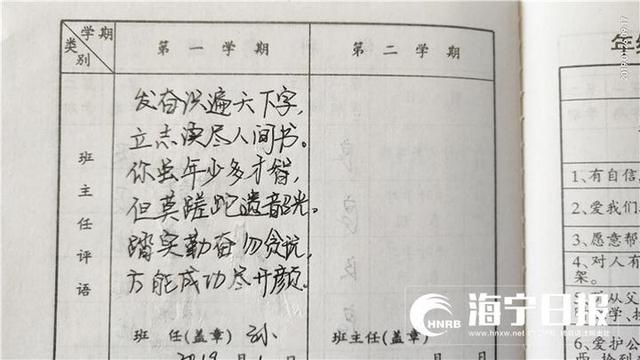 学期
类别
第一学期
第二学期
班主任评语
发奋识遍天下字,
立志读尽人间书。
你虽年少多才智,
但莫蹉跎遗韶光。
踏实勤奋勿贪玩,
方能成功尽开颜。
班 任(盖章)
班主任(盖章)
年级
1、有自信,
2、爱我们
3、愿意帮
4、对人有
架。
从父
学、
6、爱护公
HNRB
海宁日报
www.hnrb.net